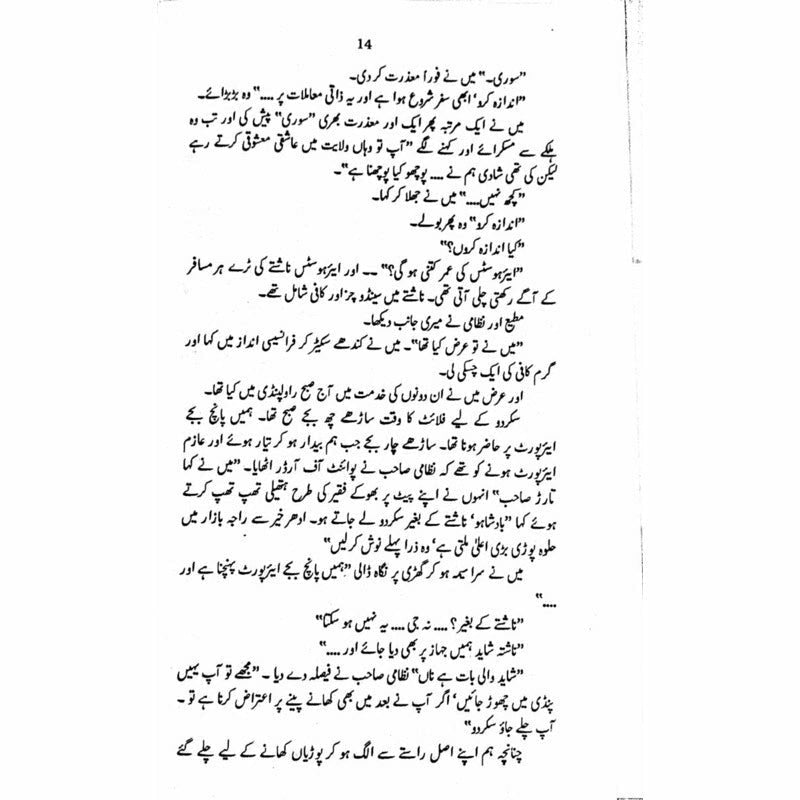 14
"سوری۔" میں نے فوراً معذرت کر دی۔
"اندازہ کرو' ابھی سفر شروع ہوا ہے اور یہ ذاتی معاملات پر ...." وہ بڑبڑائے۔
میں نے ایک مرتبہ پھر ایک اور معذرت بھری "سوری" پیش کی اور تب وہ
ہلکے سے مسکرائے اور کہنے لگے "آپ تو وہاں ولایت میں عاشقی معشوقی کرتے رہے
لیکن کی تھی شادی ہم نے .... پوچھو کیا پوچھنا ہے"۔
"کچھ نہیں...." میں نے جھلا کر کہا۔
"اندازہ کرو" وہ پھر بولے۔
"کیا اندازہ کروں؟"
"ایئرہوسٹس کی عمر کتنی ہو گی؟" ۔۔ اور ایئرہوسٹس ناشتے کی ٹرے ہر مسافر
کے آگے رکھتی چلی آتی تھی۔ ناشتے میں سینڈوچز اور کافی شامل تھے۔
مطیع اور نظامی نے میری جانب دیکھا۔
"میں نے تو عرض کیا تھا"۔ میں نے کندھے سکیڑ کر فرانسیسی انداز میں کہا اور
گرم کافی کی ایک چسکی لی۔
اور عرض میں نے ان دونوں کی خدمت میں آج صبح راولپنڈی میں کیا تھا۔
سکردو کے لیے فلائٹ کا وقت ساڑھے چھ بجے صبح تھا۔ ہمیں پانچ بجے
ایئرپورٹ پر حاضر ہونا تھا۔ ساڑھے چار بجے جب ہم بیدار ہو کر تیار ہوئے اور عازم
ایئرپورٹ ہونے کو تھے کہ نظامی صاحب نے پوائنٹ آف آرڈر اٹھایا۔ "میں نے کہا
تارڑ صاحب" انہوں نے اپنے پیٹ پر بھوکے فقیر کی طرح ہتھیلی تھپ تھپ کرتے
ہوئے کہا "بادشاہو' ناشتے کے بغیر سکردو لے جاتے ہو۔ ادھر خیر سے راجہ بازار میں
حلوہ پوڑی بڑی اعلیٰ ملتی ہے' وہ ذرا پہلے نوش کر لیں"
میں نے سراسیمہ ہو کر گھڑی پر نگاہ ڈالی "ہمیں پانچ بجے ایئرپورٹ پہنچنا ہے اور
...."
"ناشتے کے بغیر؟ .... نہ جی .... یہ نہیں ہو سکتا"
"ناشتہ شاید ہمیں جہاز پر بھی دیا جائے اور ...."
"شاید والی بات ہے ناں" نظامی صاحب نے فیصلہ دے دیا ۔ "مجھے تو آپ یہیں
پنڈی میں چھوڑ جائیں' اگر آپ نے بعد میں بھی کھانے پینے پر اعتراض کرنا ہے تو ۔
آپ چلے جاؤ سکردو"
چنانچہ ہم اپنے اصل راستے سے الگ ہو کر پوڑیاں کھانے کے لیے چلے گئے